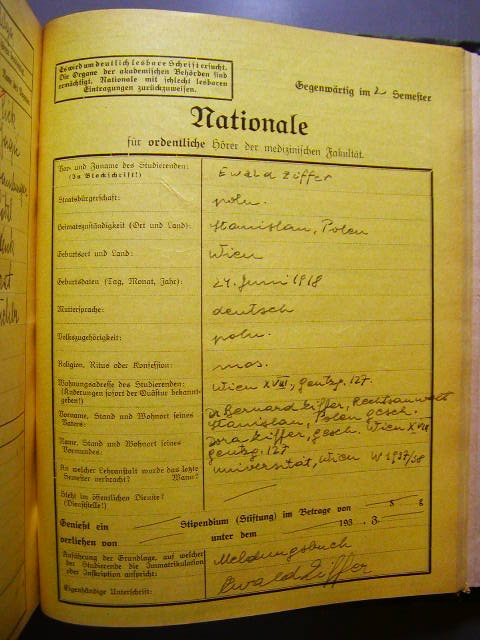 Es wird um deutlich lesbare Schrift ersucht.
Die Organe der akademischen Behörden sind
ermächtigt, Nationale mit schlecht lesbaren
Eintragungen zurückzuweisen.
Gegenwärtig im 2 Semester
Nationale
für ordentliche Hörer der medizinischen Fakultät.
Vor- und Zuname des Studierenden:
(In Blockschrift!)
Ewald Ziffer
Staatsbürgerschaft:
poln.
Heimatszuständigkeit (Ort und Land):
Stanislau, Polen
Geburtsort und Land:
Wien
Geburtsdaten (Tag, Monat, Jahr):
24. Juni 1918
Muttersprache:
deutsch
Volkszugehörigkeit:
poln.
Religion, Ritus oder Konfession:
mos.
Wohnungsadresse des Studierenden:
(Änderungen sofort der Quästur bekanntgeben!)
Wien XVIII., Gentzg. 127.
Vorname, Stand und Wohnort seines
Vaters:
Dr Bernard Ziffer, Rechtsanwalt
Stanislau, Polen gesch.
Name, Stand und Wohnort seines
Vormundes:
Dora Ziffer, gesch. Wien XVIII
Gentzg. 127
An welcher Lehranstalt wurde das letzte
Semester verbracht? Wann?
Universität, Wien W 1937/38
Steht im öffentlichen Dienste?
(Dienststelle!)
Genießt ein Stipendium (Stiftung) im Betrage von S g
verliehen von unter dem 193 3.
Anführung der Grundlage, auf welcher
der Studierende die Immatrikulation
oder Inskription anspricht:
Meldungsbuch
Eigenhändige Unterschrift:
Ewald Ziffer